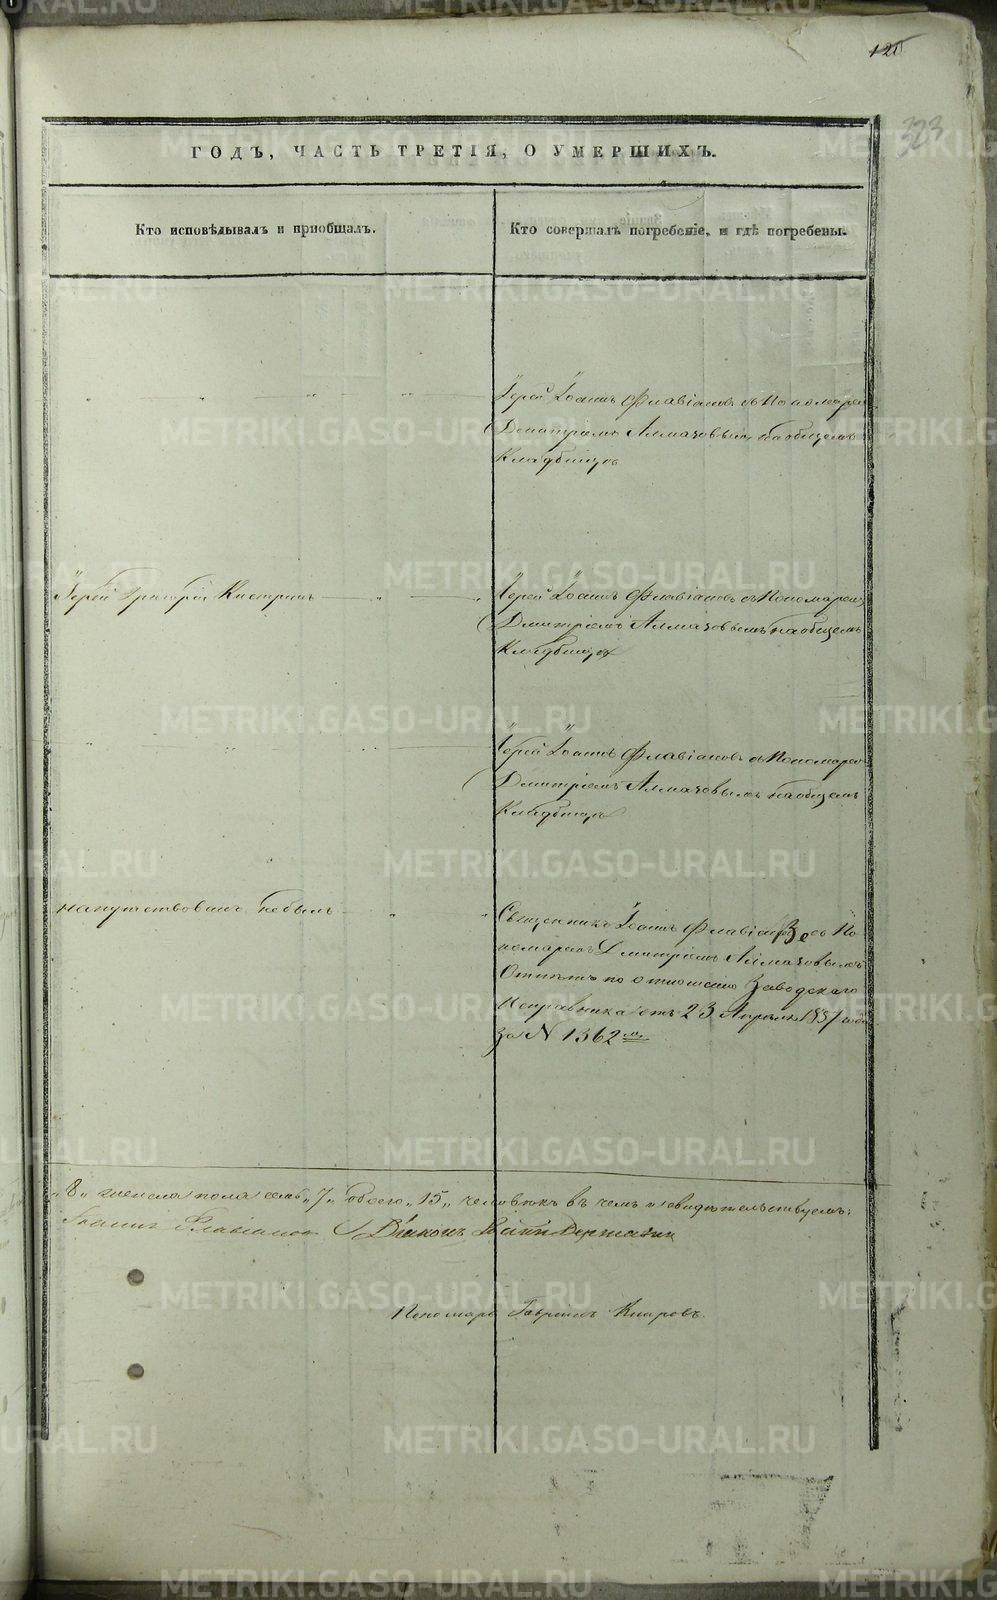 125
323
ГОДЪ, ЧАСТЬ ТРЕТІЯ, О УМЕРШИХЪ.
Кто исповѣдывалъ и пріобщалъ.
Кто совершалъ погребеніе, и гдѣ погребены.
Іерей Іоаннъ Флавіановъ съ Пономаремъ
Дмитріемъ Алмазовымъ на общемъ
Кладбищѣ
Іерей Григорій
Іерей Іоаннъ Флавіановъ съ Пономаремъ
Дмитріемъ Алмазовымъ на общемъ
Кладбищѣ
Іерей Іоаннъ Флавіановъ съ Пономаремъ
Дмитріемъ Алмазовымъ на общемъ
Кладбищѣ
напутствованъ небылъ
Священникъ Іоаннъ Флавіановъ съ По
номаремъ Дмитріемъ Алмазовымъ
Отпѣтъ по отношенію Заводскаго
Исправника отъ 23 Апрѣля 1857 года
за N 1362 мъ
"8" женска пола семь "7" обоего "15" человѣкъ въ чемъ и свидѣтельствуемъ:
Іоаннъ Флавіановъ Діаконъ
Пономарь Гавріилъ
METRIKI.GASO-URAL.RU